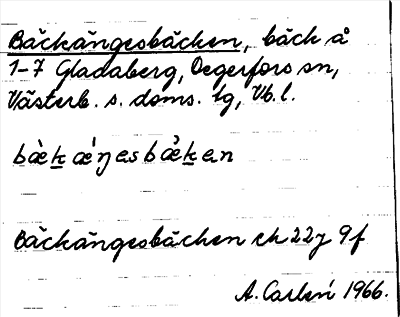 Bäckängesbäcken, bäck å
1-7 Gladaberg, Degerfors sn,
Västerb. s. doms. lg, Vb. l.
bæ̀k æ´ŋesbæ̉ken
Bäckängesbäcken ek 22J 9f
A. Carlén 1966.